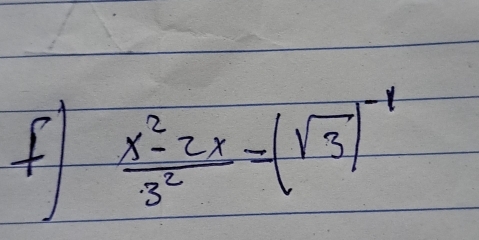 f) \frac{x^2-2x}{3^2} = (\sqrt{3})^{-1}